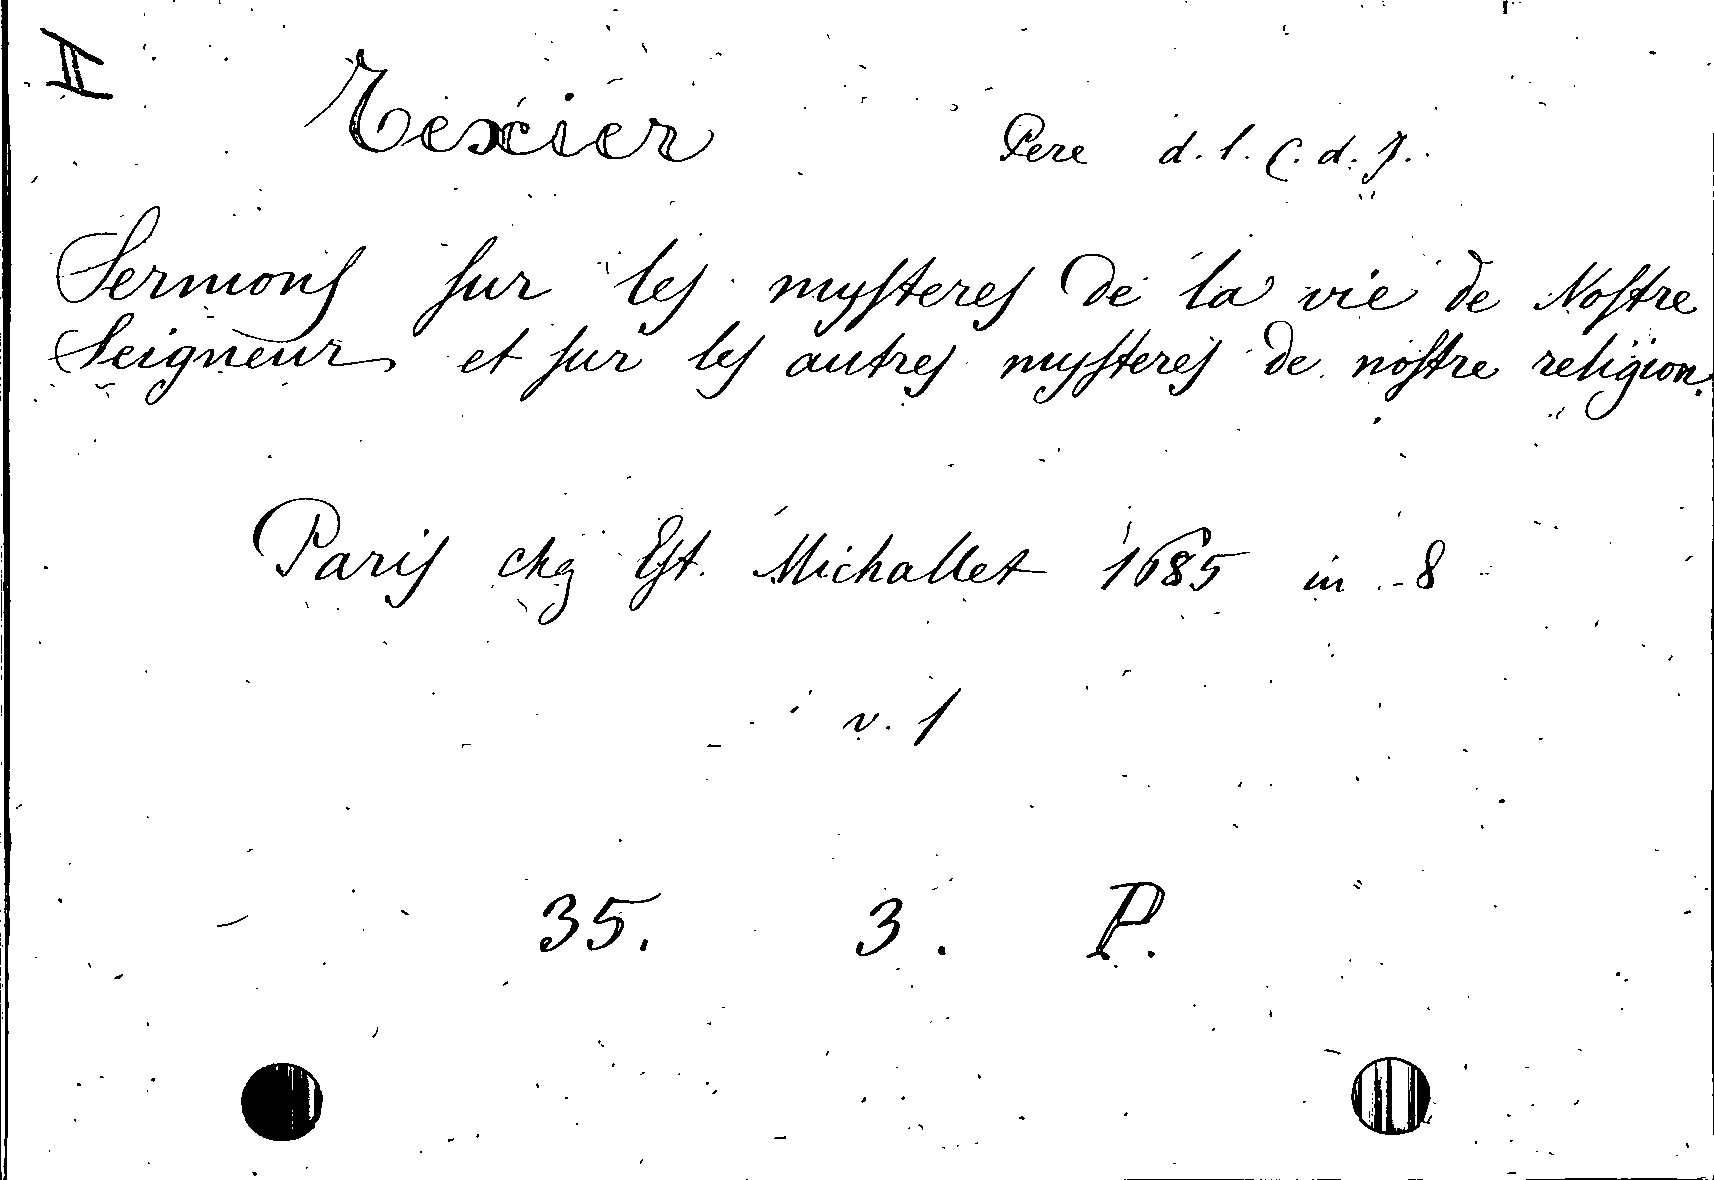 II
Texier Pere d. l. C. d. J.
Sermons sur les mysteres de la vie de Nostre
Seigneur et sur les autres mysteres de nostre religion.
Paris chez Est. Michallet 1685 in-8
v. 1
35. 3. P.